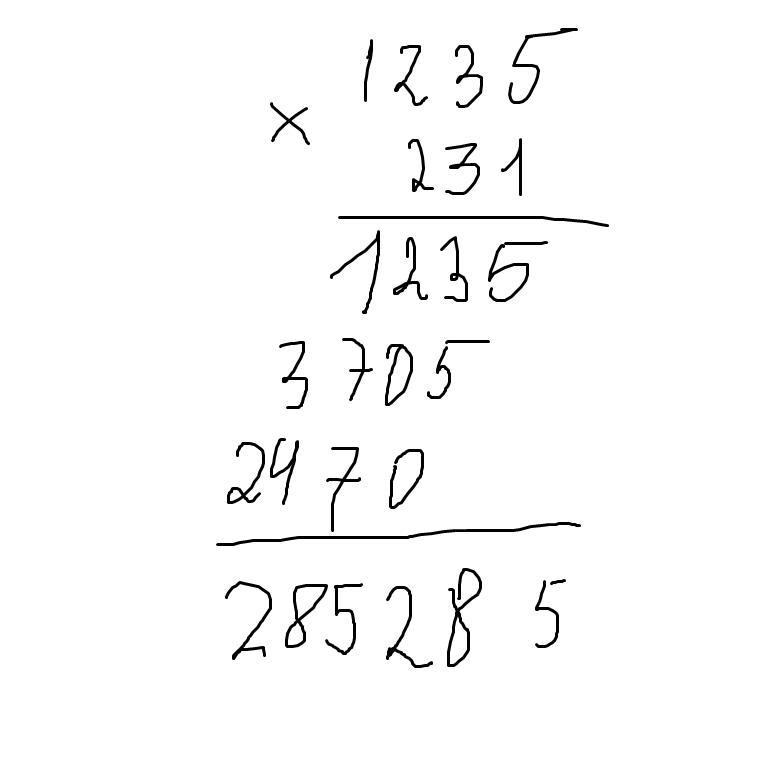 1235
× 231
1235
3705
2470
285285